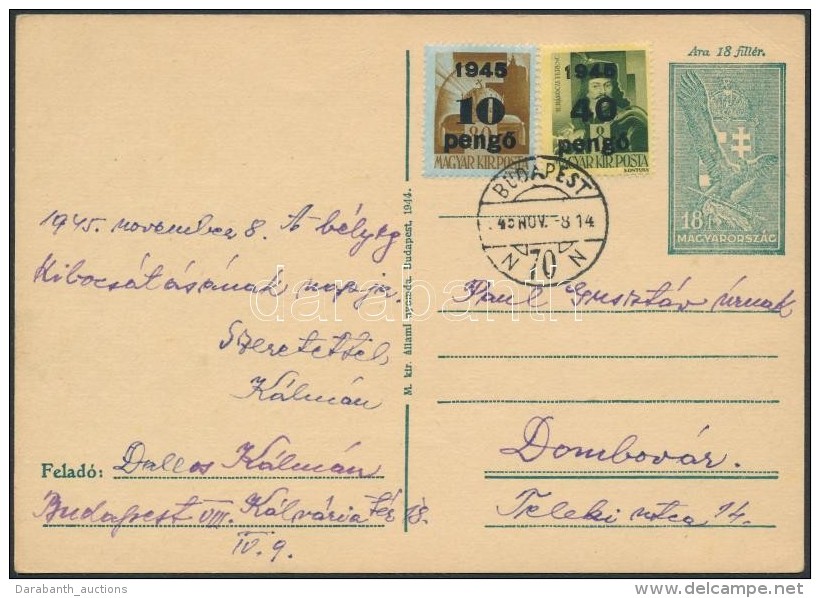 Ára 18 fillér.
1945
10
pengő
80
MAGYAR KIR. POSTA
1945
40
pengő
8
MAGYAR KIR. POSTA
18f
MAGYARORSZÁG
BUDAPEST
45 NOV. -8 14
N 70 N
1945. november 8. A bélyeg
Kibocsátásának napja.
Szeretettel,
Kálmán
Feladó: Dallos Kálmán
Budapest VIII. Kálvária tér 18.
IV. 9.
M. kir. állami nyomda. Budapest, 1944.
Paul Gusztáv úrnak
Dombovár.
Teleki utca 14.
darabanth
Darabanth_auctions
delcampe.net